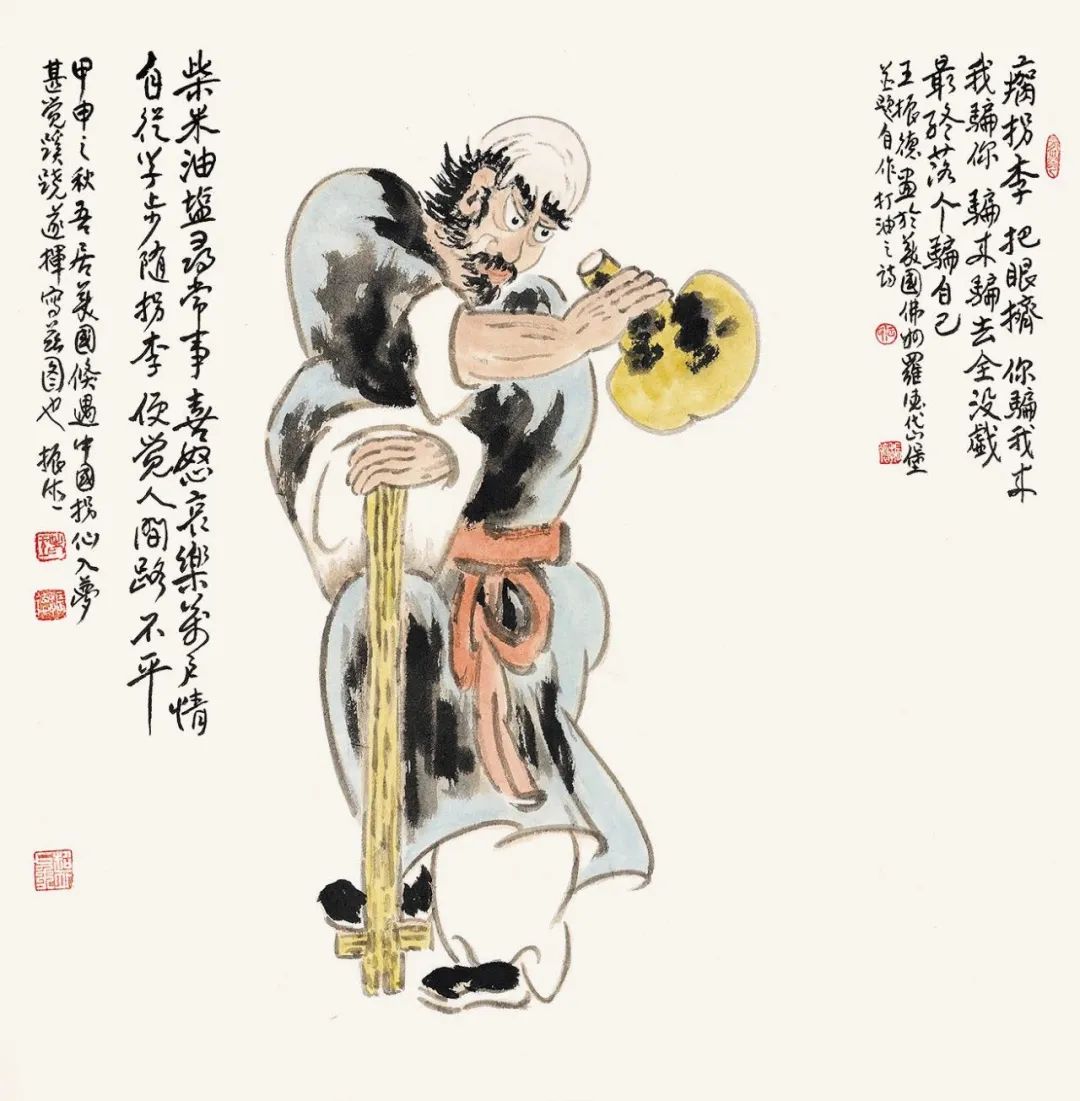 瘸拐李 把眼擠 你騙我来
我騙你 騙来騙去全没戲
最終落个騙自己
王振德畫於美國佛州羅德岱堡
並題自作打油之詩
柴米油塩尋常事 喜怒哀樂萬戶情
自從学步随拐李 便觉人間路不平
甲申之秋吾居美國倏遇中國拐仙入夢
甚觉蹊跷遂揮写茲图也 振德